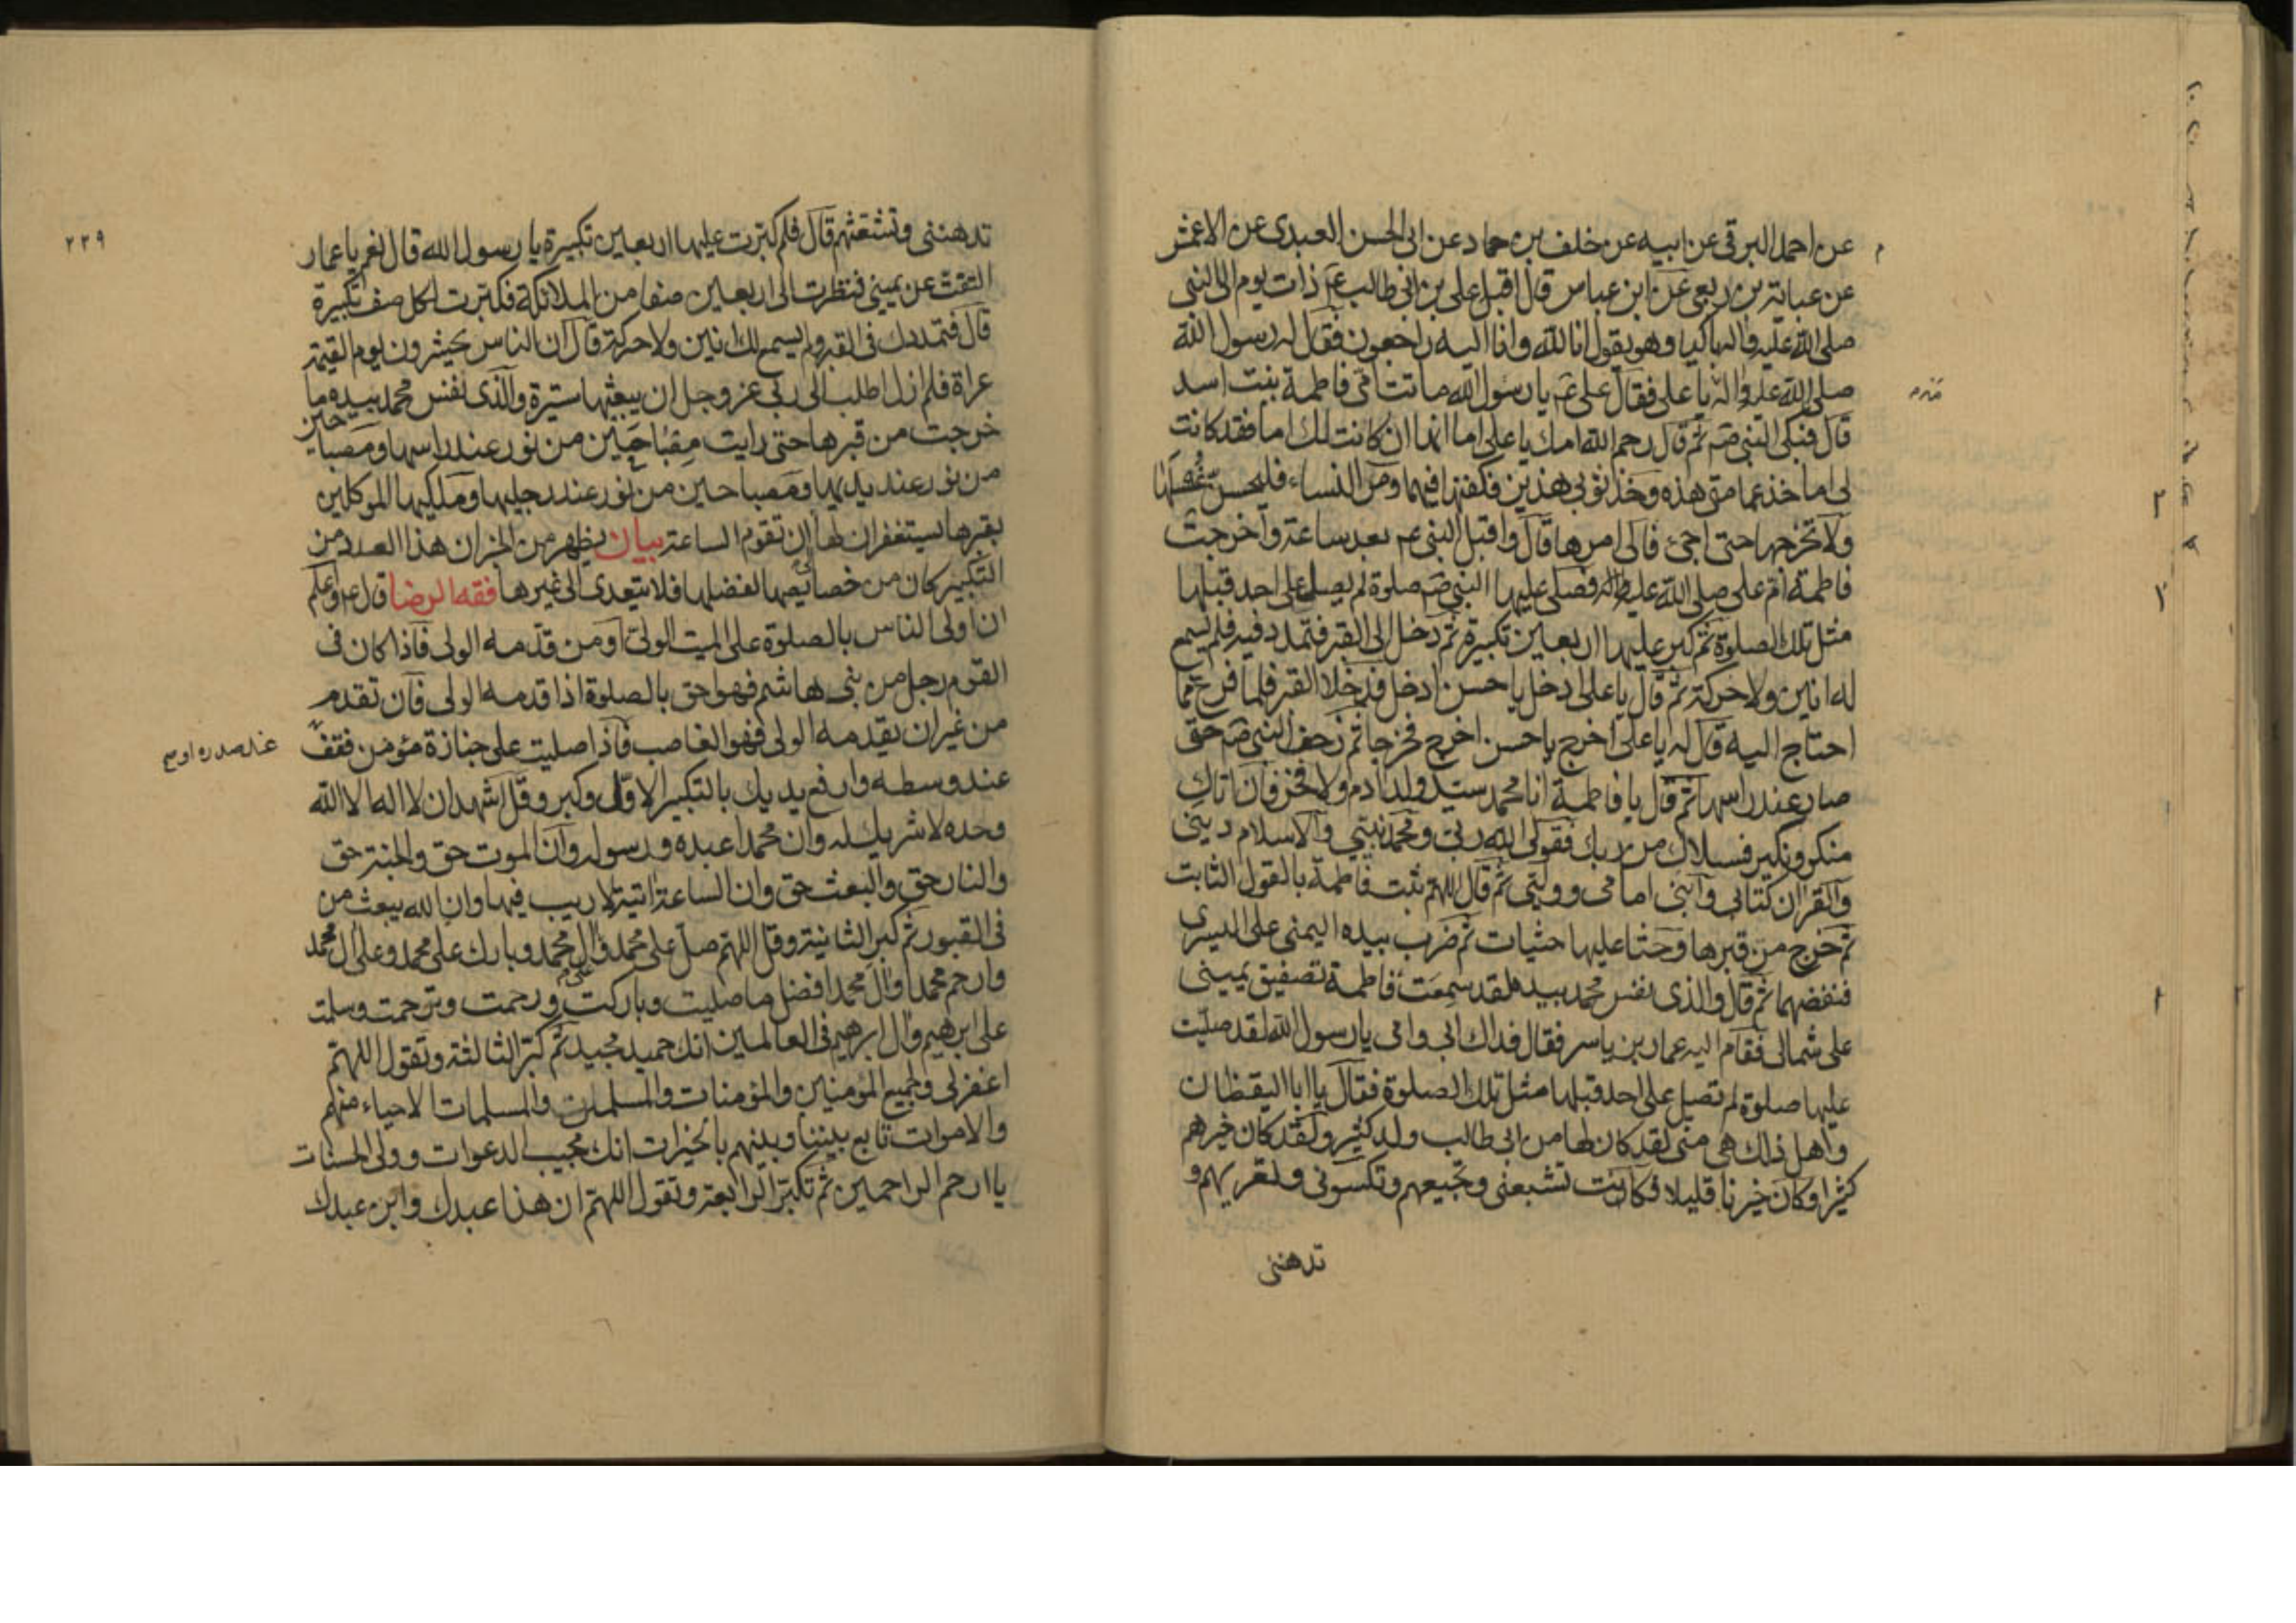 عن احمد البرقی عن ابیه عن خلف بن حماد عن ابی الحسن العبدی عن الاعمش
عن عبایة بن ربعی عن ابن عباس قال اقبل علی بن ابی طالب ع ذات یوم الی النبی
صلی الله علیه واله باکیا وهو یقول انا لله وانا الیه راجعون فقال له رسول الله
صلی الله علیه واله یا علی فقال علی ع یا رسول الله ماتت امی فاطمة بنت اسد
قال فبکی النبی ص ثم قال رحم الله امک یا علی اما انها ان کانت لک اما فقد کانت
لی اما خذ عمامتی هذه وخذ ثوبی هذین فکفنها فیهما ومر النساء فلیحسن غسلها
ولا تخرجها حتی اجئ فالی امرها قال واقبل النبی ع بعد ساعة واخرجت
فاطمة ام علی صلی الله علیه واله فصلی علیها النبی ص صلوة لم یصل علی احد قبلها
مثل تلک الصلوة ثم کبر علیها اربعین تکبیرة ثم دخل الی القبر فتمدد فیه فلم یسمع
له انین ولا حرکة ثم قال یا علی ادخل یا حسن ادخل فدخلا القبر فلما فرغ مما
احتاج الیه قال له یا علی اخرج یا حسن اخرج فخرجا ثم زحف النبی ص حتی
صار عند راسها ثم قال یا فاطمة انا محمد سید ولد ادم ولا فخر فان اتاک
منکر ونکیر فسالاک من ربک فقولی الله ربی ومحمد نبیی والاسلام دینی
والقران کتابی وابنی امامی وولیی ثم قال اللهم ثبت فاطمة بالقول الثابت
ثم خرج من قبرها وحثا علیها حثیات ثم ضرب بیده الیمنی علی الیسری
فنفضهما ثم قال والذی نفس محمد بیده لقد سمعت فاطمة تصفیق یمینی
علی شمالی فقام الیه عمار بن یاسر فقال فداک ابی وامی یا رسول الله لقد صلیت
علیها صلوة لم تصل علی احد قبلها مثل تلک الصلوة فقال یا ابا الیقظان
واهل ذلک هی منی لقد کان لها من ابی طالب ولد کثیر ولقد کان خیرهم
کثیرا وکان خیرنا قلیلا فکانت تشبعنی وتجیعهم وتکسونی وتعریهم و
تدهننی
٢٢٩
تدهننی وتشعثهم قال فلم کبرت علیها اربعین تکبیرة یا رسول الله قال نعم یا عمار
التفت عن یمینی فنظرت الی اربعین صفا من الملائکة فکبرت لکل صف تکبیرة
قال فتمددک فی القبر ولم یسمع لک انین ولا حرکة قال ان الناس یحشرون یوم القیمة
عراة فلم ازل اطلب الی ربی عز وجل ان یبعثها ستیرة والذی نفس محمد بیده ما
خرجت من قبرها حتی رایت مصباحین من نور عند راسها ومصباحین
من نور عند یدیها ومصباحین من نور عند رجلیها وملکیها الموکلین
بقبرها یستغفران لها الی ان تقوم الساعة بیان یظهر من الخبر ان هذا العدد من
التکبیر کان من خصائصها لفضلها فلا یتعدی الی غیرها فقه الرضا قال ع واعلم
ان اولی الناس بالصلوة علی المیت الولی او من قدمه الولی فاذا کان فی
القوم رجل من بنی هاشم فهو احق بالصلوة اذا قدمه الولی فان تقدم
من غیر ان یقدمه الولی فهو الغاصب فاذا صلیت علی جنازة مؤمن فقف
عند صدره او
عند وسطه وارفع یدیک بالتکبیر الاول وکبر وقل اشهد ان لا اله الا الله
وحده لا شریک له وان محمدا عبده ورسوله وان الموت حق والجنة حق
والنار حق والبعث حق وان الساعة اتیة لا ریب فیها وان الله یبعث من
فی القبور ثم کبر الثانیة وقل اللهم صل علی محمد وال محمد وبارک علی محمد وعلی ال محمد
وارحم محمدا وال محمد افضل ما صلیت وبارکت ورحمت وترحمت وسلمت
علی ابرهیم وال ابرهیم فی العالمین انک حمید مجید ثم کبر الثالثة وتقول اللهم
اغفر لی ولجمیع المؤمنین والمؤمنات والمسلمین والمسلمات الاحیاء منهم
والاموات تابع بیننا وبینهم بالخیرات انک مجیب الدعوات وولی الحسنات
یا ارحم الراحمین ثم تکبر الرابعة وتقول اللهم ان هذا عبدک وابن عبدک